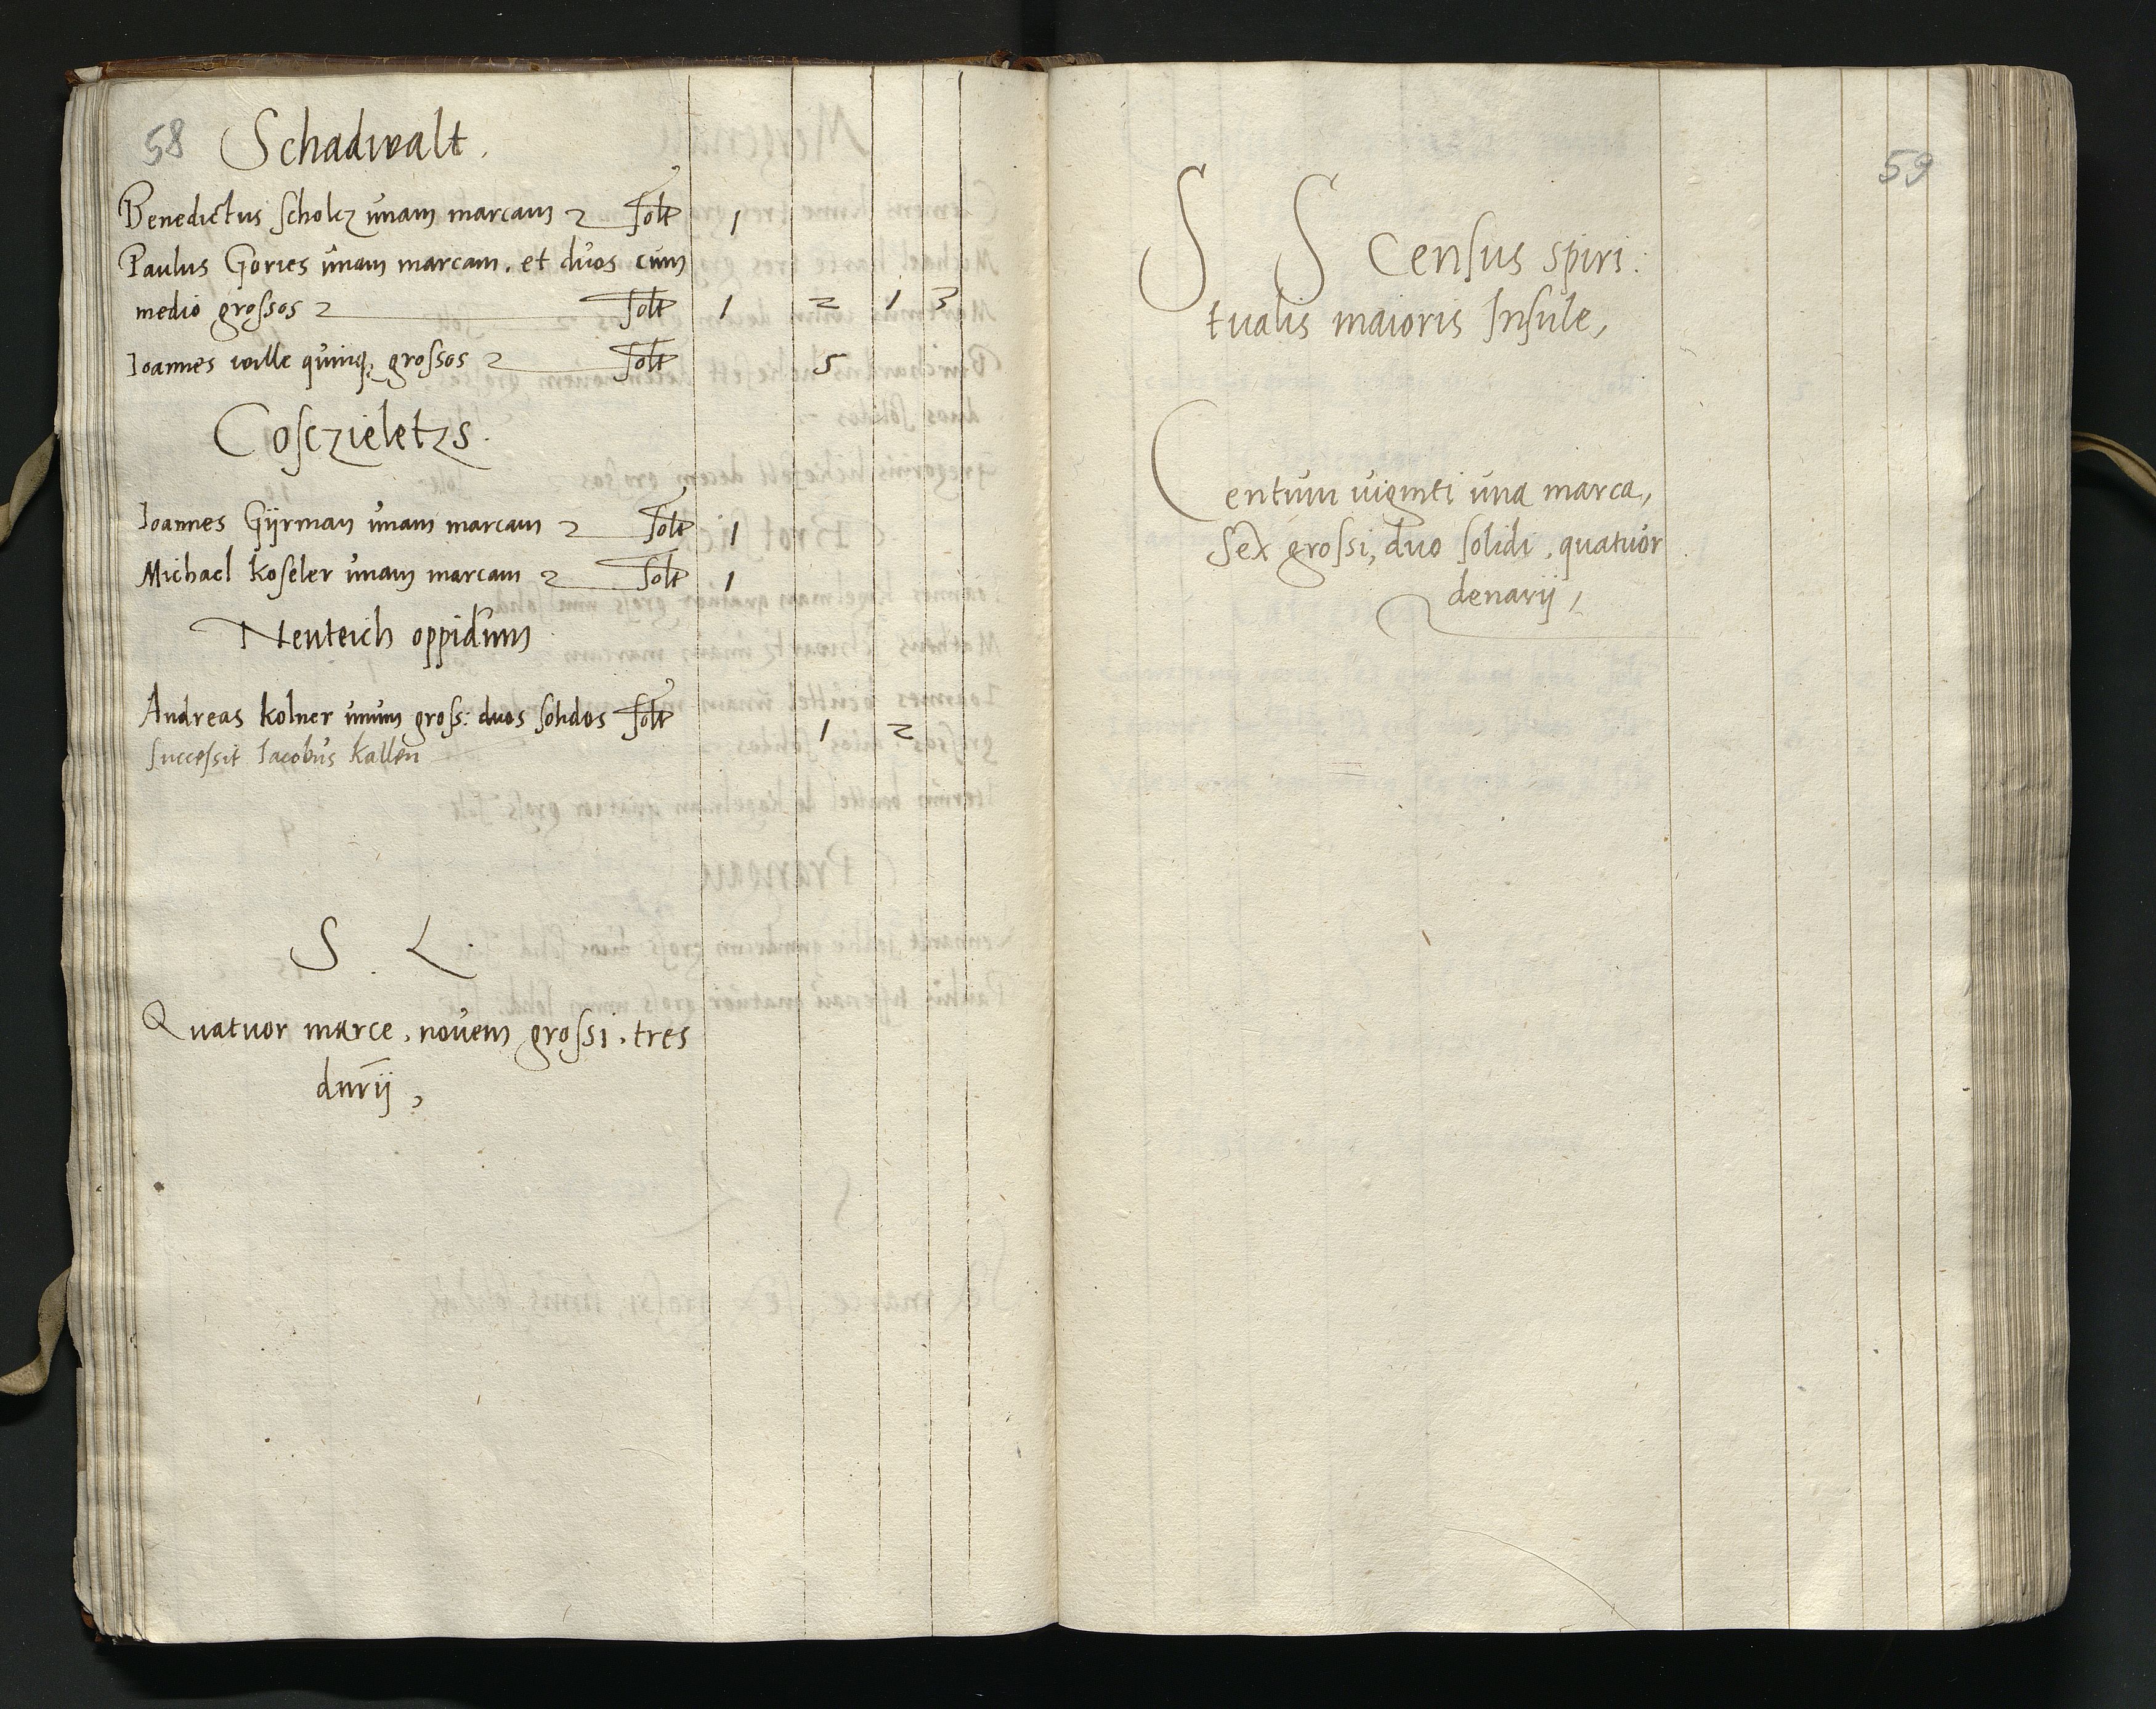 58 Schadwalt.
Benedictus scholcz unam marcam solt 1
Paulus Gories unam marcam. et duos cum
medio grossos solt 1 2 1 3
Joannes wille quinq; grossos solt 5
Cosczieletzs.
Joannes Gyrman unam marcam solt 1
Michael koseler unam marcam solt 1
Neuteich oppidum
Andreas kolner unum gross: duos solidos solt 1 2
successit Jacobus kallen
S. L.
Quatuor marce. novem grossi. tres
dnrij,
59
S S Census spiri:
tualis maioris Insule,
Centum viginti una marca,
Sex grossi, duo solidi, quatuor
denarij,